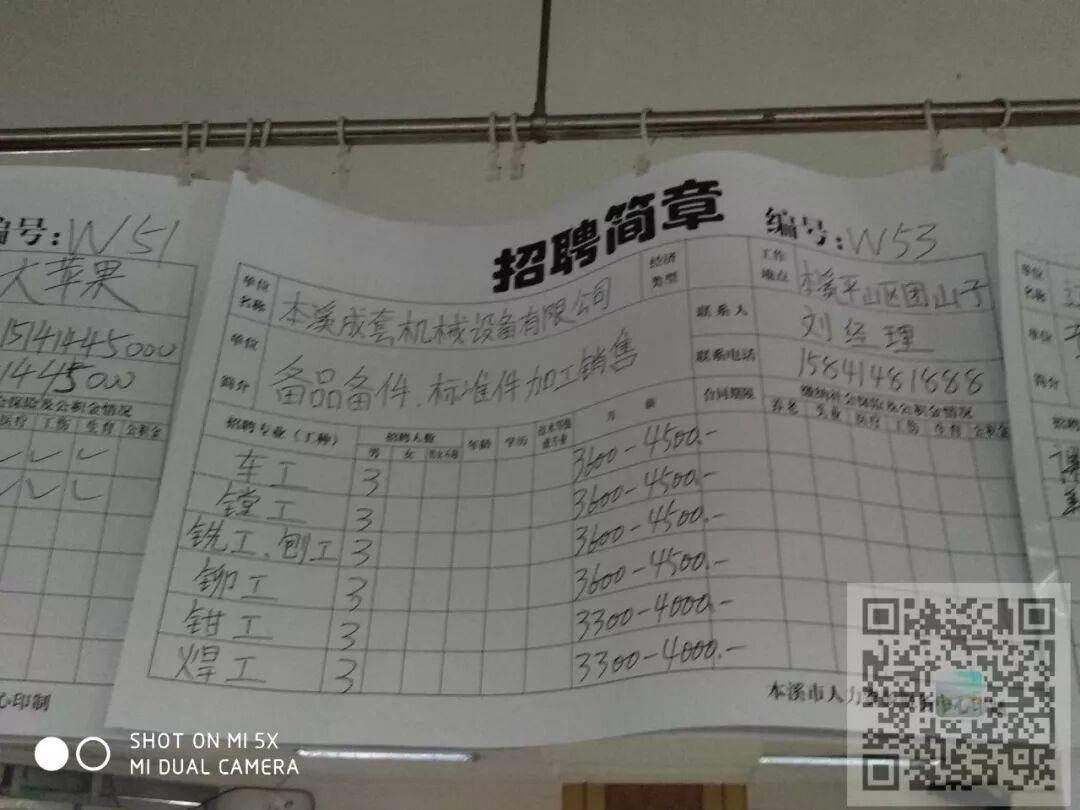 编号:W51
大苹果
15141445000
1445000
保险及公积金情况
医疗 工伤 生育 公积金
心印制
招聘简章
编号:W53
单位名称 本溪成套机械设备有限公司 经济类型 工作地点 本溪平山区团山子
单位简介 备品备件、标准件加工销售 联系人 刘经理
联系电话 15841481888
合同期限 缴纳社会保险及公积金情况
养老 失业 医疗 工伤 生育 公积金
招聘专业(工种) 招聘人数 年龄 学历 月薪
男 女
车工 3 3600-4500.-
镗工 3 3600-4500.-
铣工、刨工 3 3600-4500.-
铆工 3 3600-4500.-
钳工 3 3300-4000.-
焊工 3 3300-4000.-
本溪市人力
单位名称
单位
简介
SHOT ON MI 5X
MI DUAL CAMERA